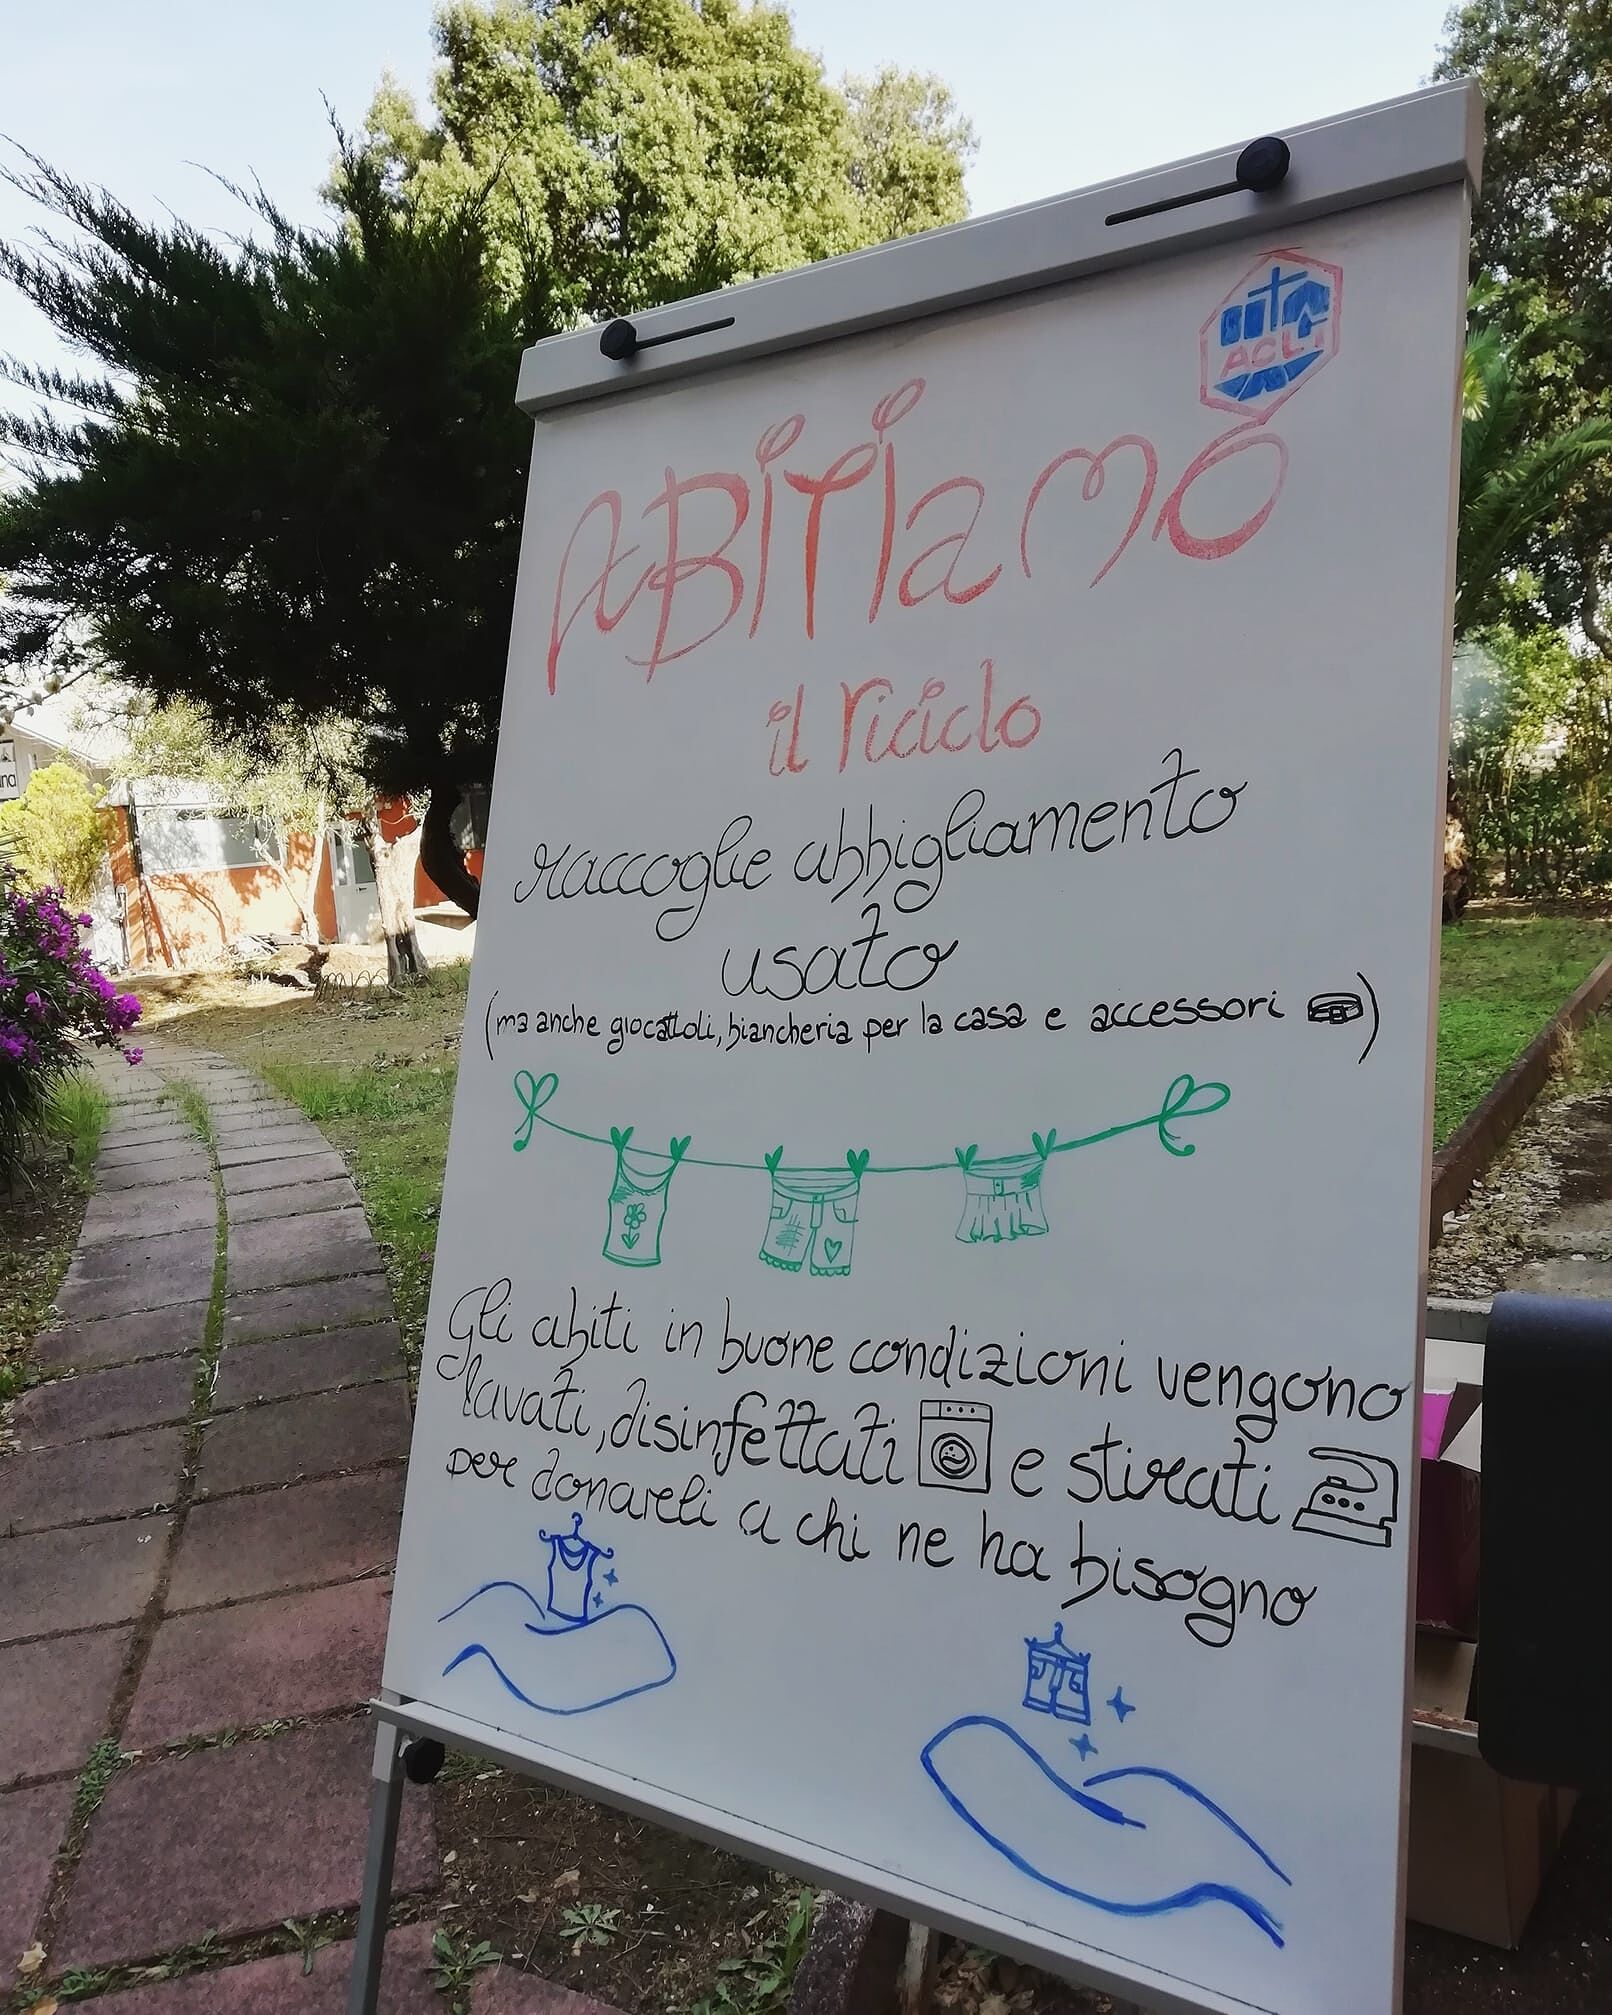 ACLI
ABITIAMO
il riciclo
raccoglie abbigliamento
usato
(ma anche giocattoli, biancheria per la casa e accessori)
Gli abiti in buone condizioni vengono
lavati, disinfettati e stirati
per donareli a chi ne ha bisogno